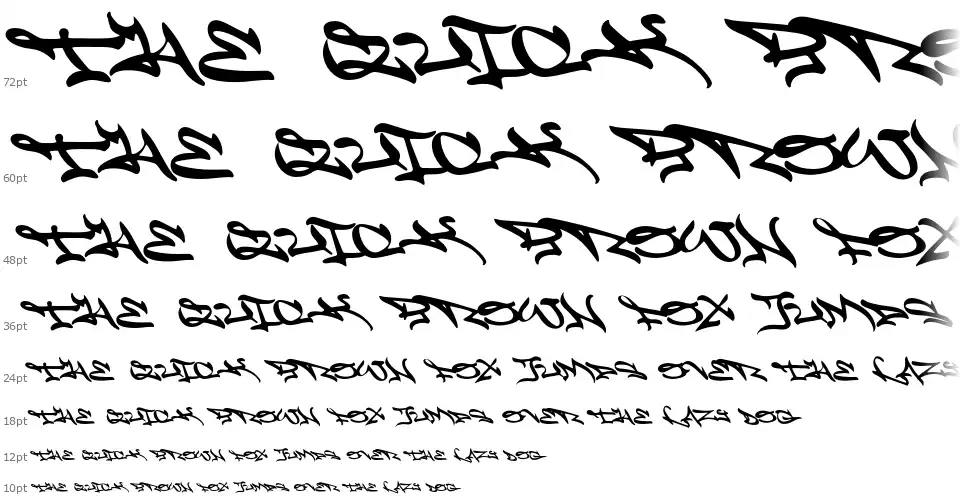 THE QUICK BRO
72pt
THE QUICK BROWN
60pt
THE QUICK BROWN FOX
48pt
THE QUICK BROWN FOX JUMPS
36pt
THE QUICK BROWN FOX JUMPS OVER THE LAZY
24pt
THE QUICK BROWN FOX JUMPS OVER THE LAZY DOG
18pt
THE QUICK BROWN FOX JUMPS OVER THE LAZY DOG
12pt
THE QUICK BROWN FOX JUMPS OVER THE LAZY DOG
10pt